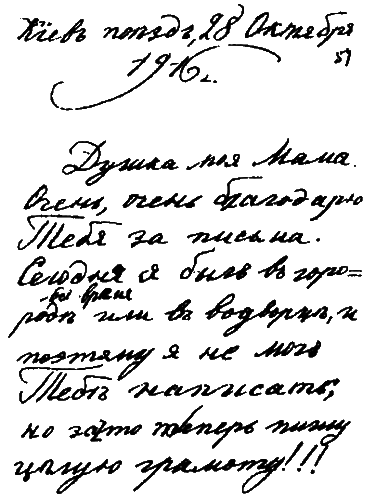 Кіевъ поѣздъ, 28 Октября
51
1916 г.
Душка моя Мама.
Очень, очень благодарю
Тебя за письма.
Сегодня я былъ въ горо=
-бы время
родѣ или въ водворцѣ, и
поэтому я не могъ
Тебѣ написать;
но зато теперь пишу
цѣлую грамоту!!!